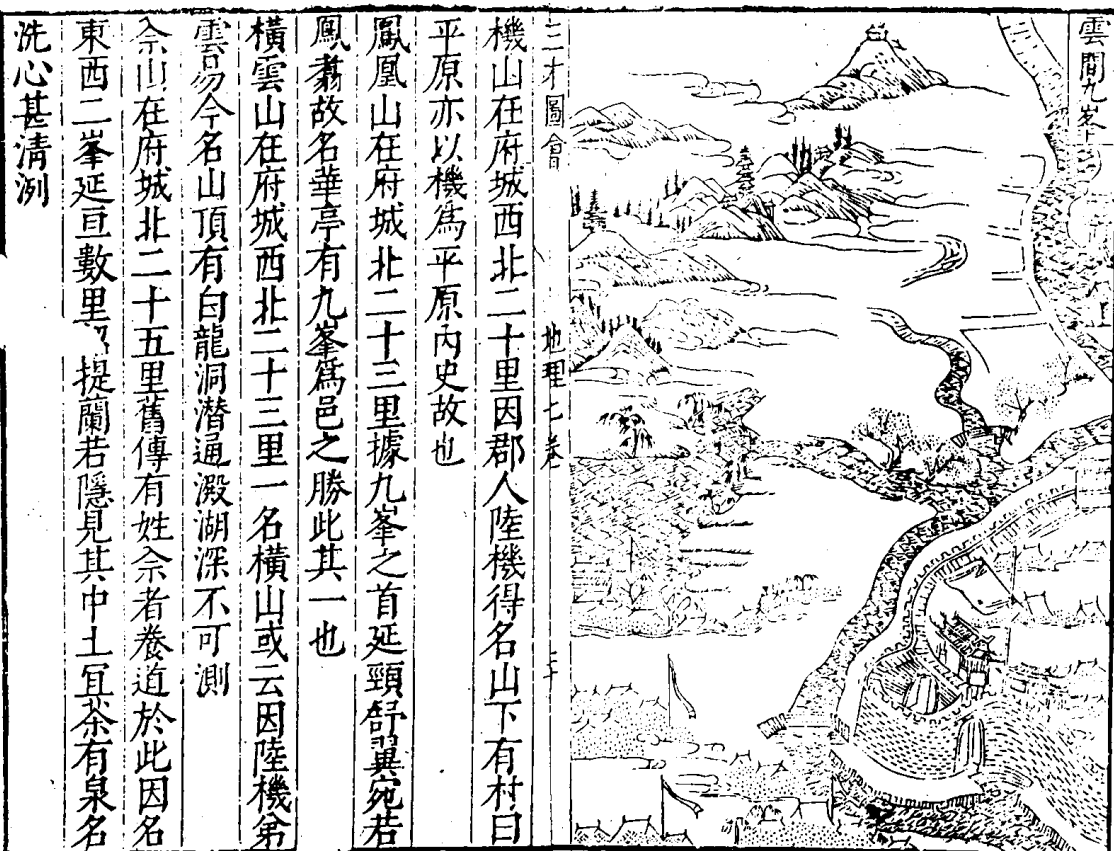 雲間九峯
三才圖會 地理七卷
機山在府城西北二十里因郡人陸機得名山下有村曰
平原亦以機爲平原內史故也
鳳凰山在府城北二十三里據九峯之首延頸舒翼宛若
鳳翥故名華亭有九峯爲邑之勝此其一也
橫雲山在府城西北二十三里一名橫山或云因陸機弟
雲易今名山頂有白龍洞潛通澱湖深不可測
佘山在府城北二十五里舊傳有姓佘者養道於此因名
東西二峯延亘數里提蘭若隱見其中土宜茶有泉名
洗心甚清洌